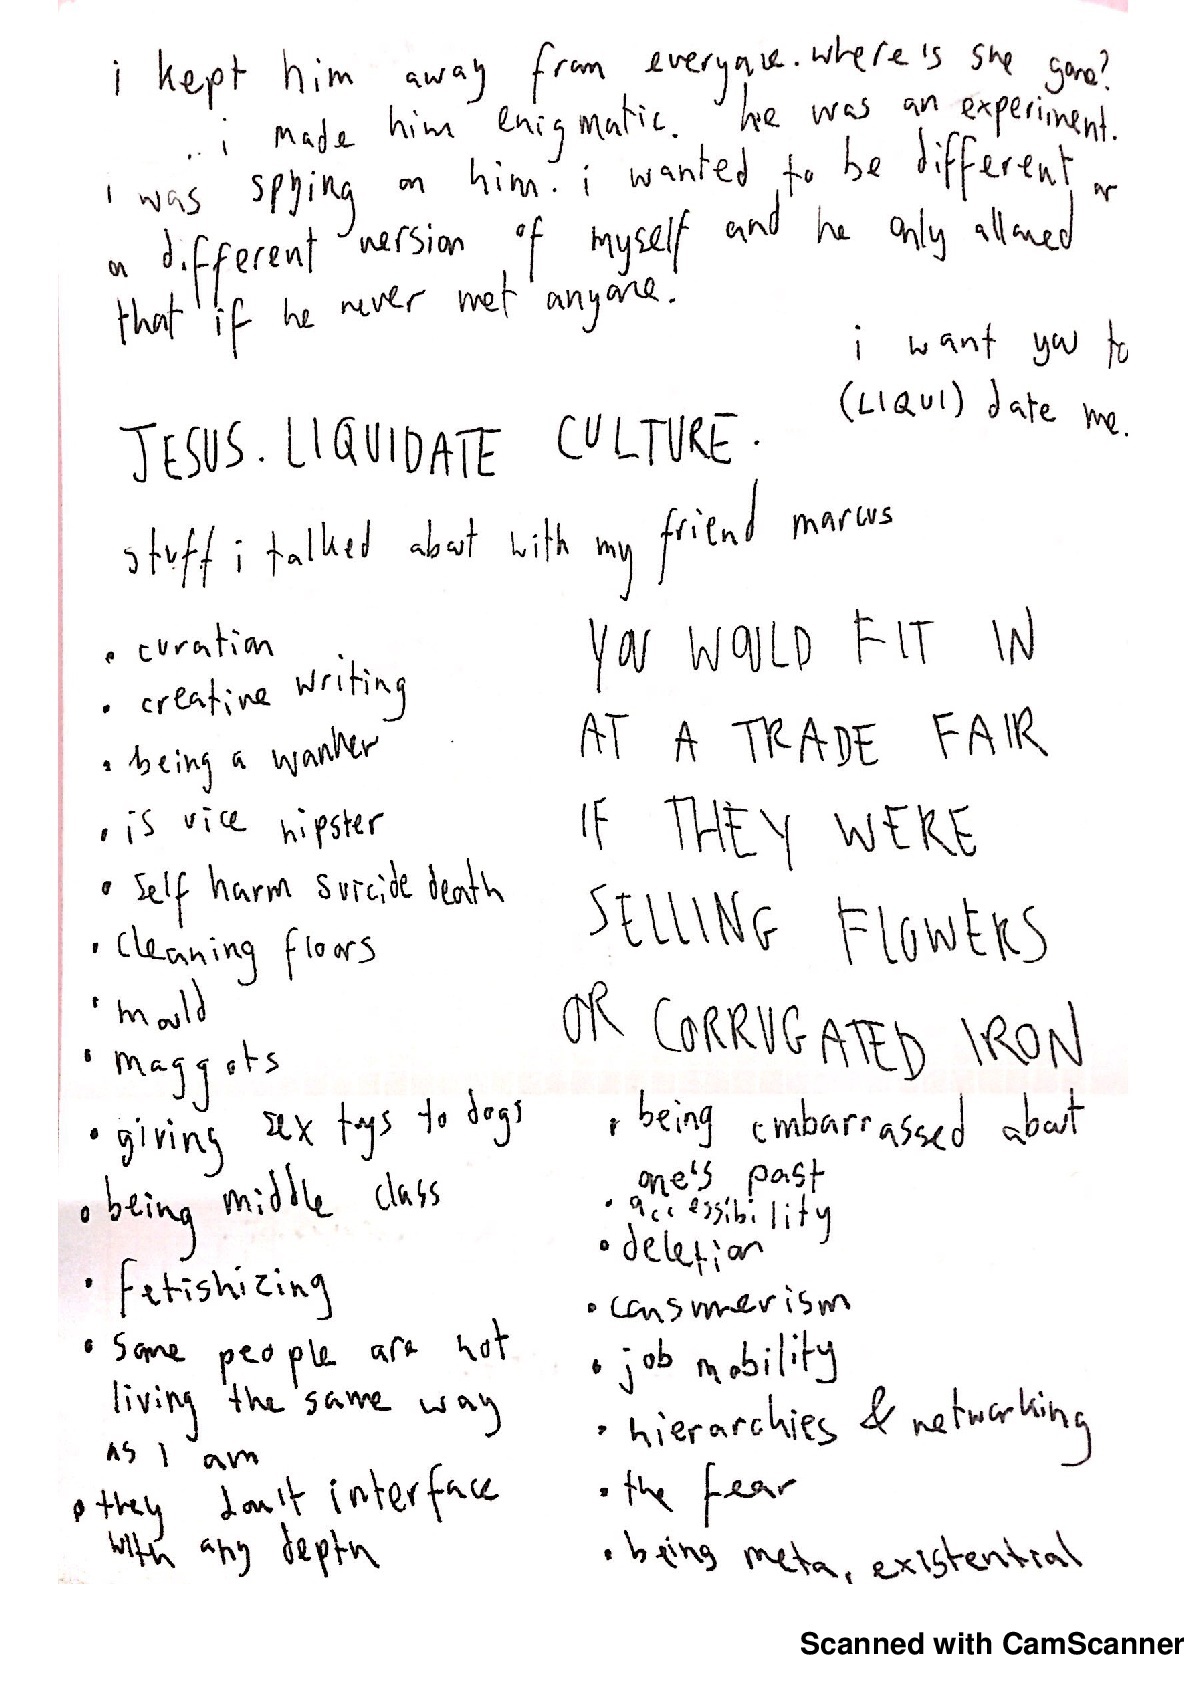 i kept him away from everyone. where is she gone?
..i made him enigmatic. he was an experiment.
i was spying on him. i wanted to be different or
a different version of myself and he only allowed
that if he never met anyone.
i want you to
(LIQUI) date me.
JESUS. LIQUIDATE CULTURE.
stuff i talked about with my friend marcus
• curation
• creative writing
• being a wanker
• is vice hipster
• self harm suicide death
• cleaning floors
• mould
• maggots
• giving sex toys to dogs
• being middle class
• fetishizing
• some people are not
living the same way
as I am
• they don't interface
with any depth
YOU WOULD FIT IN
AT A TRADE FAIR
IF THEY WERE
SELLING FLOWERS
OR CORRUGATED IRON
• being embarrassed about
one's past
• accessibility
• deletion
• consumerism
• job mobility
• hierarchies & networking
• the fear
• being meta, existential
Scanned with CamScanner